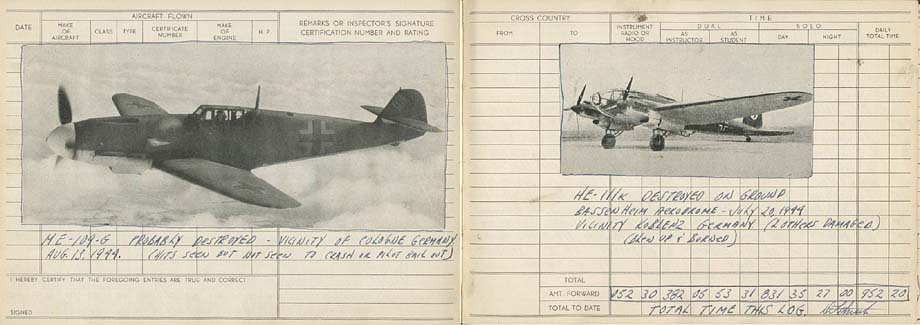 AIRCRAFT FLOWN
DATE
MAKE OF AIRCRAFT
CLASS
TYPE
CERTIFICATE NUMBER
MAKE OF ENGINE
H. P.
REMARKS OR INSPECTOR'S SIGNATURE
CERTIFICATION NUMBER AND RATING
ME-109-G PROBABLY DESTROYED - VICINITY OF COLOGNE GERMANY
AUG. 13, 1944. (HITS SEEN BUT NOT SEEN TO CRASH OR PILOT BAIL OUT)
I HEREBY CERTIFY THAT THE FOREGOING ENTRIES ARE TRUE AND CORRECT.
SIGNED
CROSS COUNTRY
TIME
FROM
TO
INSTRUMENT RADIO OR HOOD
DUAL
AS INSTRUCTOR
AS STUDENT
SOLO
DAY
NIGHT
DAILY TOTAL TIME
HE-111K DESTROYED ON GROUND
BASSENHEIM AERODROME - JULY 20, 1944
VICINITY KOBLENZ GERMANY (2 OTHERS DAMAGED)
(BLEW UP & BURNED)
TOTAL
AMT. FORWARD 052 30 382 05 53 31 831 35 27 00 952 20
TOTAL TO DATE TOTAL TIME THIS LOG.